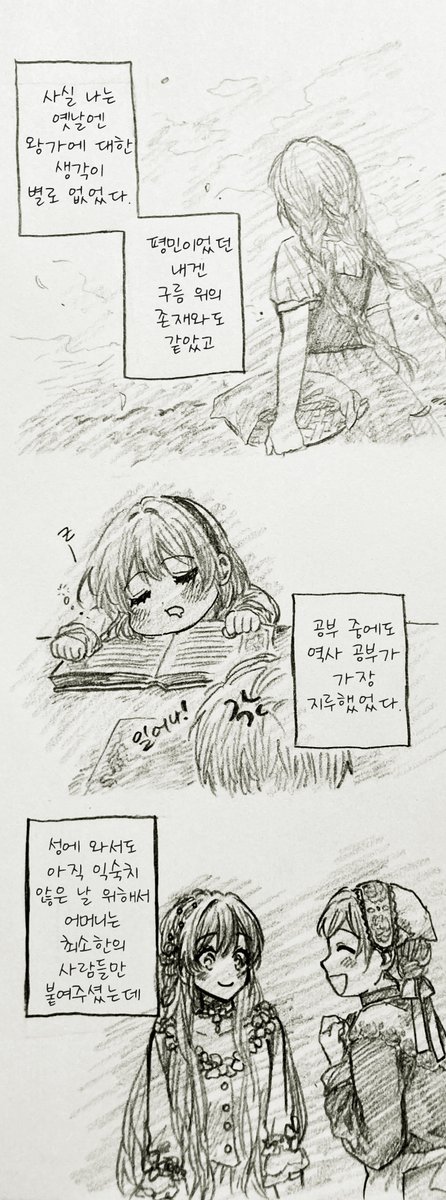 사실 나는
옛날엔
왕가에 대한
생각이
별로 없었다.
평민이었던
내겐
구름 위의
존재와도
같았고
z
일어나!
공부 중에도
역사 공부가
가장
지루했었다.
성에 와서도
아직 익숙치
않은 날 위해서
어머니는
최소한의
사람들만
붙여주셨는데